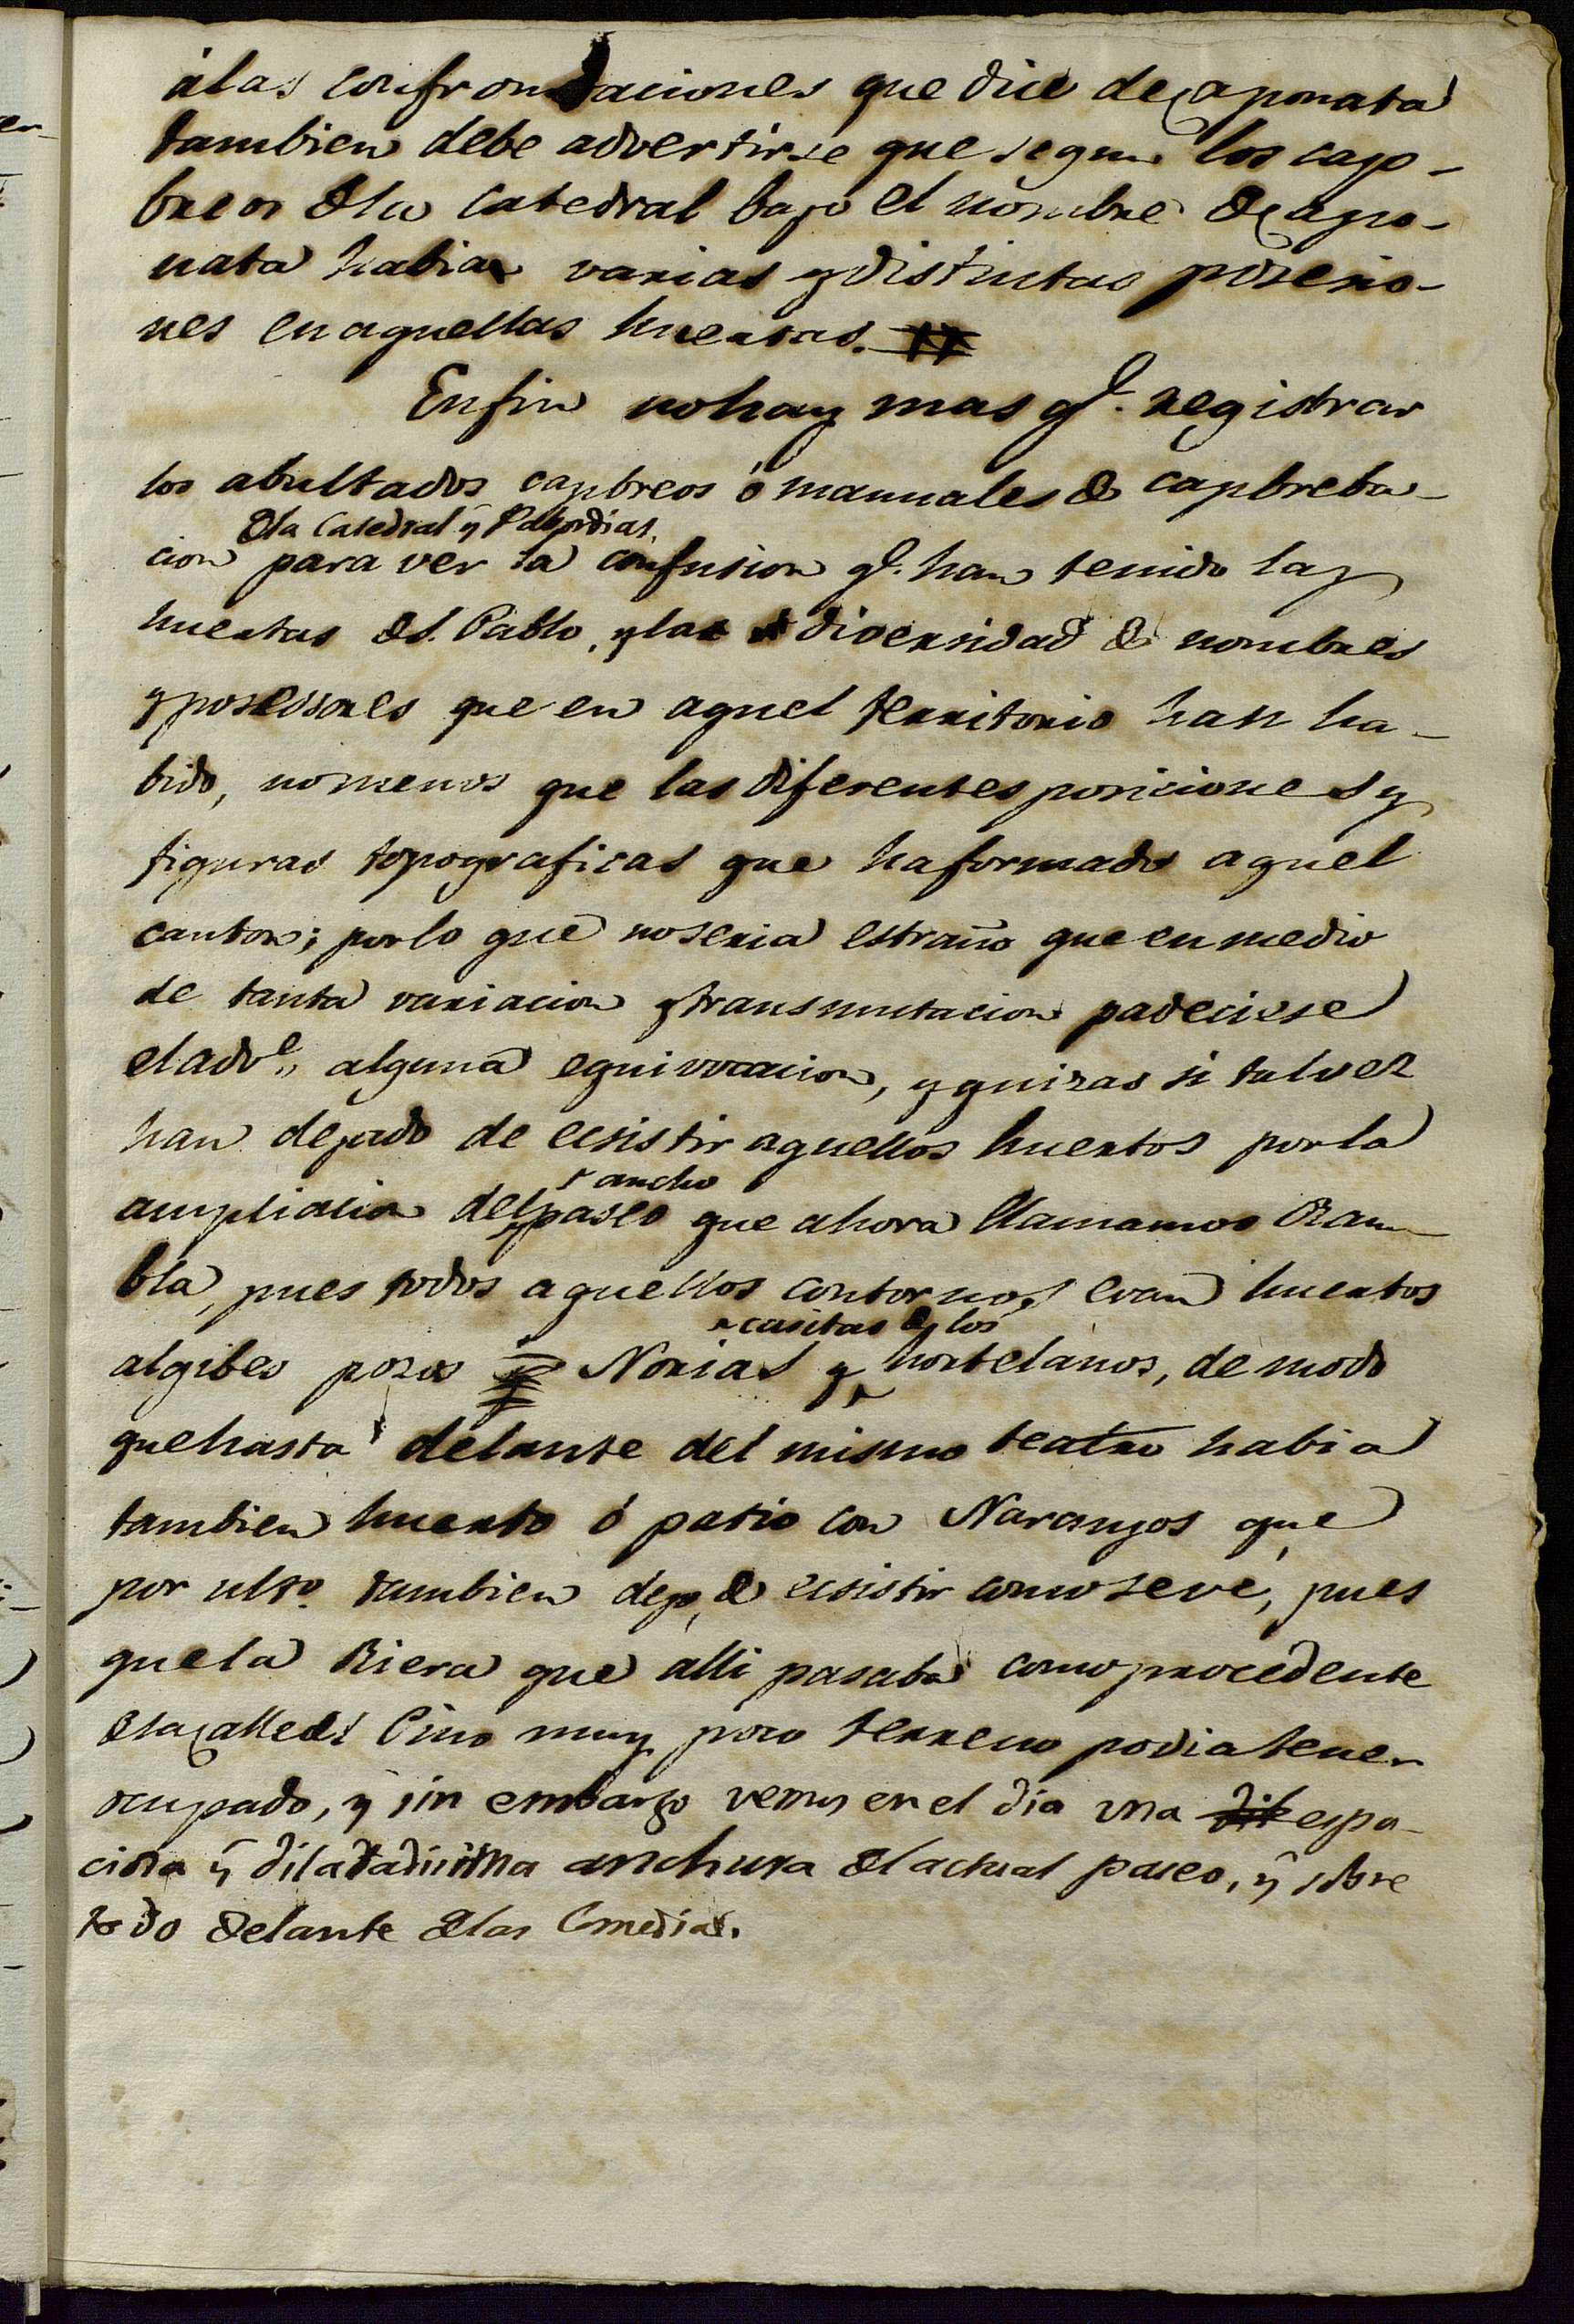 álas confrontaciones que dice de Caponata
tambien debe advertirse que segun los cap-
breos de la Catedral bajo el nombre de Capo-
nata habia varias y distintas posesio-
nes en aquellas huertas.
En fin no hay mas q.e registrar
los abultados capbreos ó manuales de capbreba-
de la Catedral y Pabordias,
cion para ver la confusion q.e han tenido las
huertas de S. Pablo, y la diversidad de nombres
y posessores que en aquel territorio han ha-
bido, no menos que las diferentes posiciones y
figuras topograficas que ha formado aquel
canton; por lo que no seria estraño que en medio
de tanta variacion y transmutacion padeciese
el adv.e alguna equivocacion, y quizas si talvez
han dejado de ecsistir aquellos huertos por la
ancho
ampliacion del paseo que ahora llamamos Ram-
bla, pues todos aquellos contornos eran huertos
casitas de los
algibes pozos Norias y hortelanos, de modo
que hasta delante del mismo teatro habia
tambien huerto ó patio con Naranjos que
por ult.o tambien dejo de ecsistir como se ve, pues
que la Riera que alli pasaba como procedente
de la Calle del Pino muy poco terreno podia tener
ocupado, y sin embargo vemos en el dia una dil espa-
ciosa y dilatadisima anchura del actual paseo, y sobre
todo delante de las Comedias.